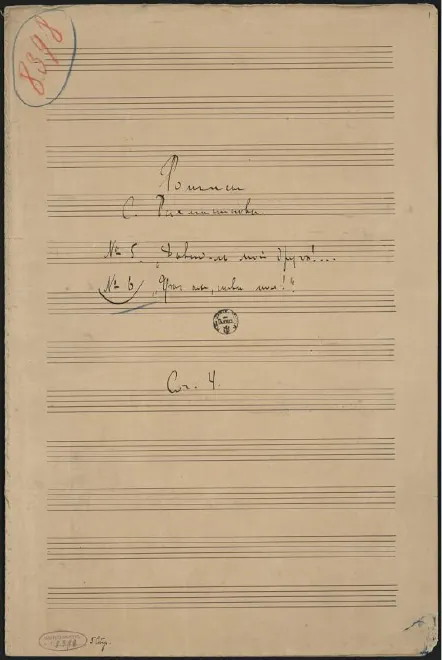 8398
Романсы
С. Рахманинова
№ 5. „Давно-ль мой другъ!...
№ 6 „Ужъ ты, нива моя!“
Соч. 4.
5 стр.